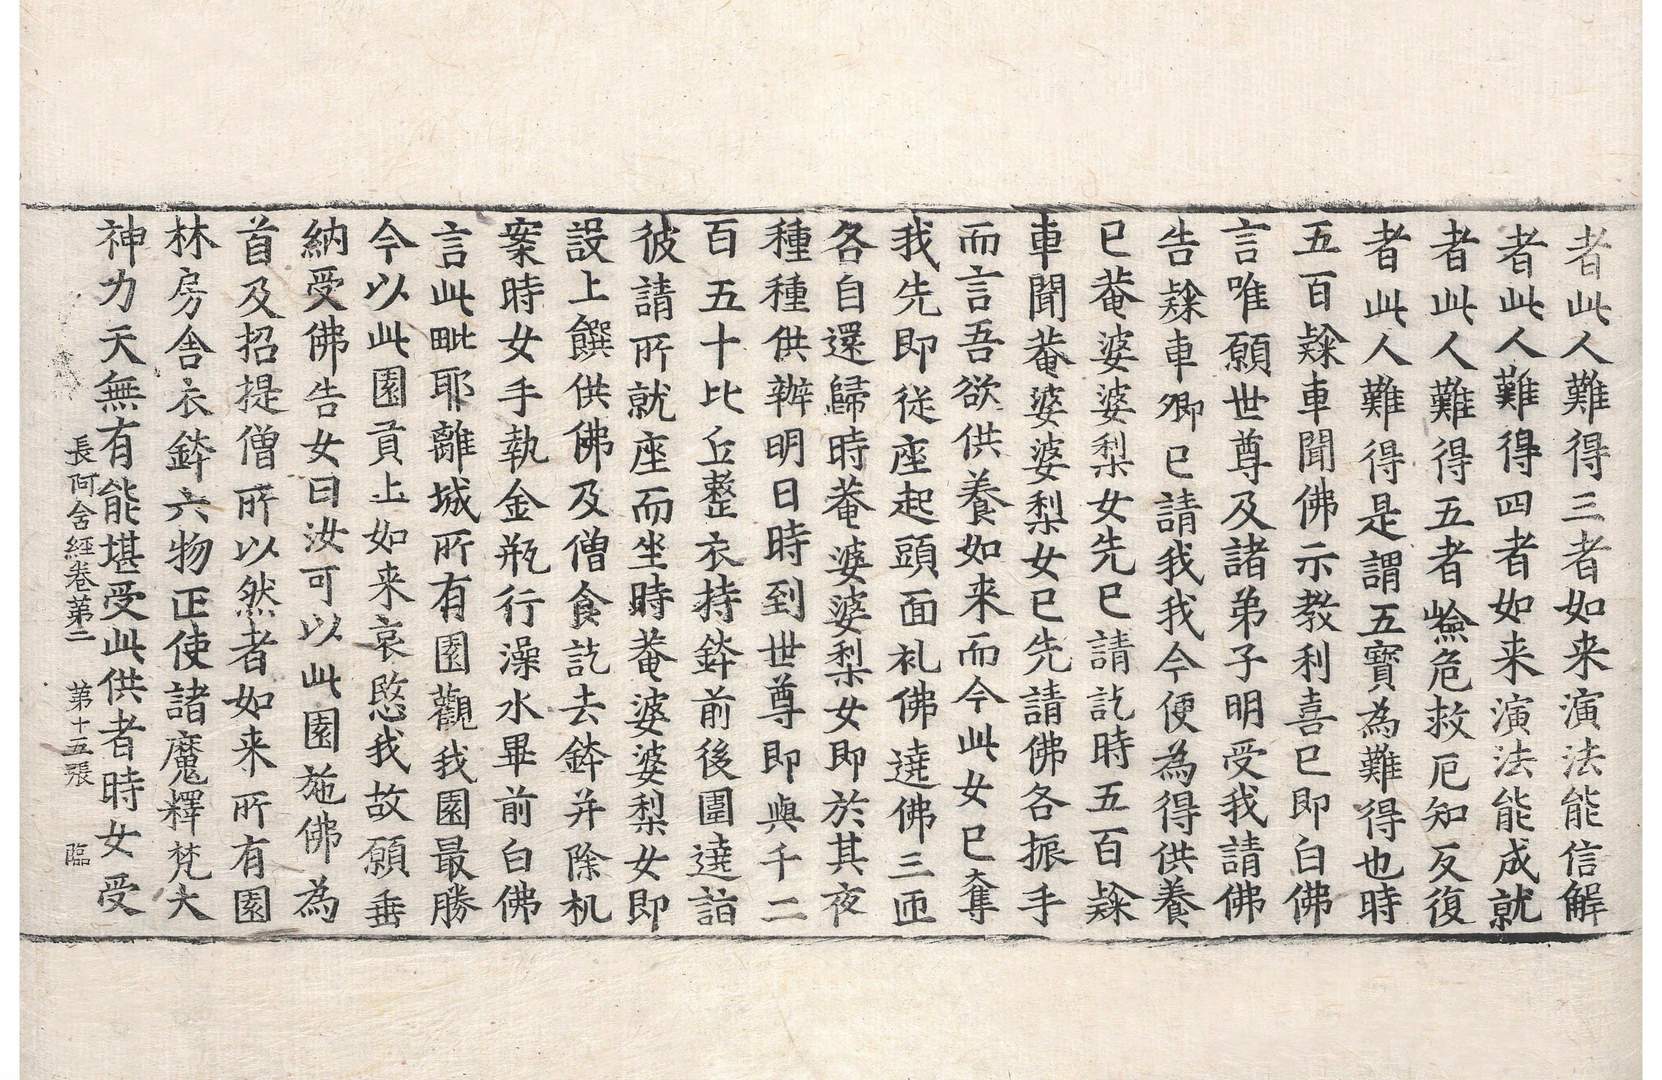 者此人難得三者如来演法能信解
者此人難得四者如来演法能成就
者此人難得五者嶮危救厄知反復
者此人難得是謂五寶為難得也時
五百𨽻車聞佛示教利喜已即白佛
言唯願世尊及諸弟子明受我請佛
告𨽻車卿已請我我今便為得供養
已菴婆婆梨女先已請訖時五百𨽻
車聞菴婆婆梨女已先請佛各振手
而言吾欲供養如来而今此女已奪
我先即従座起頭面礼佛遶佛三匝
各自還歸時菴婆婆梨女即於其夜
種種供辦明日時到世尊即與千二
百五十比丘整衣持鉢前後圍遶詣
彼請所就座而坐時菴婆婆梨女即
設上饌供佛及僧食訖去鉢并除机
案時女手執金瓶行澡水畢前白佛
言此毗耶離城所有園觀我園最勝
今以此園貢上如来哀愍我故願垂
納受佛告女曰汝可以此園施佛為
首及招提僧所以然者如来所有園
林房舍衣鉢六物正使諸魔釋梵大
神力天無有能堪受此供者時女受
長阿含經卷第二 第十五張 臨